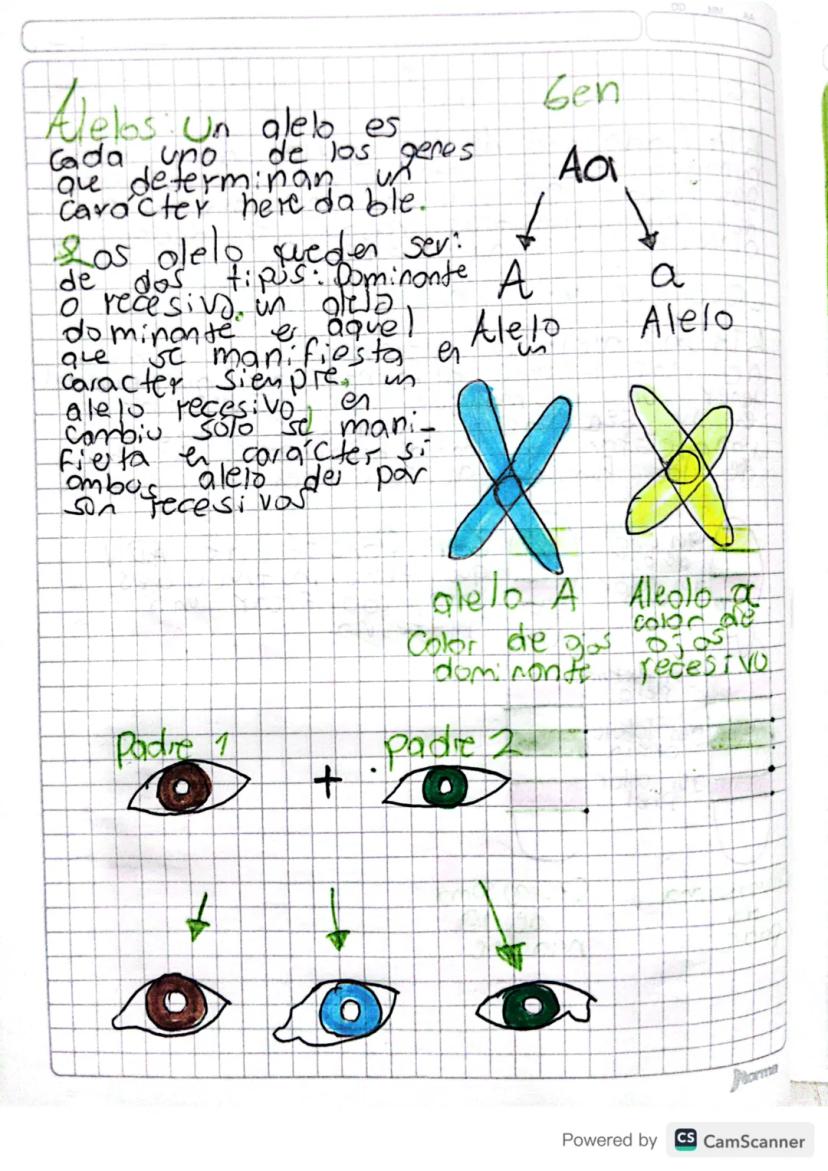 DD MM AA
Alelos: Un alelo es
cada uno de los genes
que determinan un
carácter heredable.
Los alelo pueden ser:
de dos tipos: Dominante
o recesivo. un alelo
dominante es aquel
que se manifiesta en un
caracter siempre, un
alelo recesivo, en
cambio solo se mani-
fiesta en carácter si
ambos alelo del par
son recesivos
Gen
Aa
A a
Alelo Alelo
alelo A
Color de ojos
dominante
Alealo a
color de
ojos
recesivo
Padre 1 + Padre 2
Norma
Powered by CS CamScanner